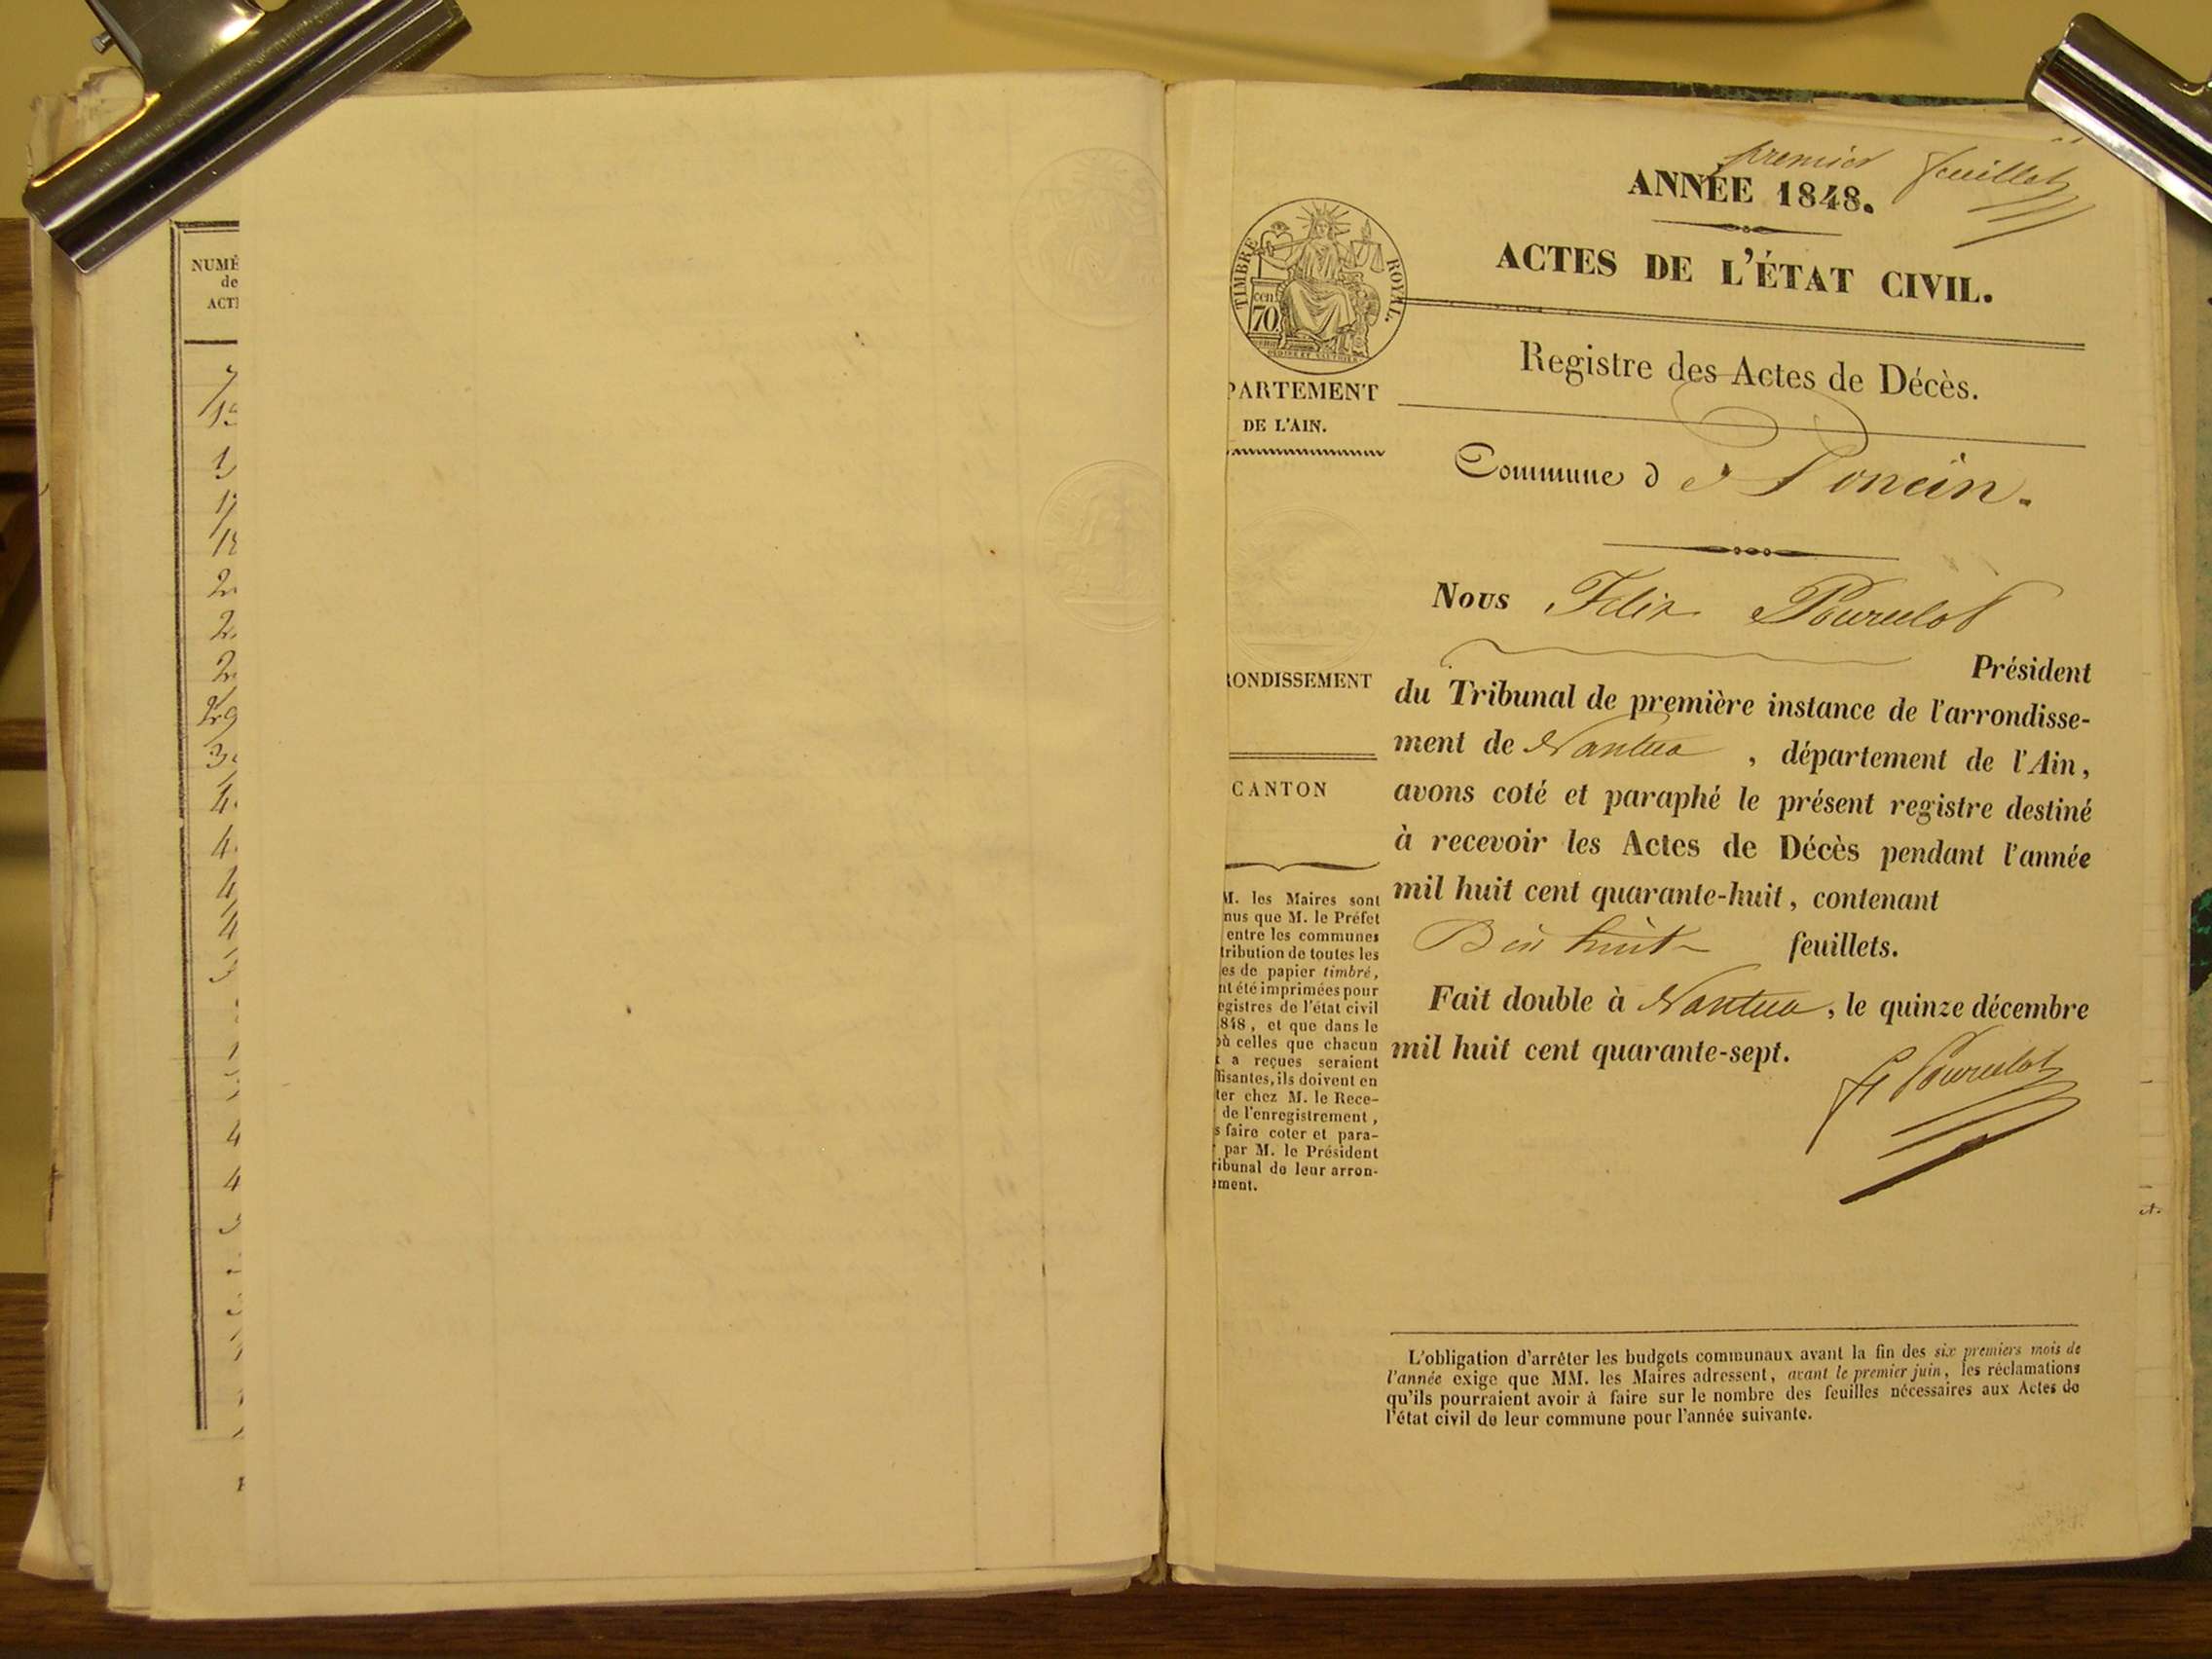 NUMÉ
de
ACT
premier feuillet
ANNÉE 1848.
ACTES DE L'ÉTAT CIVIL.
TIMBRE ROYAL.
cent
70
PARTEMENT
DE L'AIN.
Registre des Actes de Décès.
Commune de Poncin.
Nous Felix Pourcelot
Président
du Tribunal de première instance de l'arrondisse-
ment de Nantua, département de l'Ain,
avons coté et paraphé le présent registre destiné
à recevoir les Actes de Décès pendant l'année
mil huit cent quarante-huit, contenant
Dix huit feuillets.
Fait double à Nantua, le quinze décembre
mil huit cent quarante-sept.
F. Pourcelot
RONDISSEMENT
CANTON
M. les Maires sont
nus que M. le Préfet
entre les communes
tribution de toutes les
es de papier timbré,
nt été imprimées pour
egistres de l'état civil
848, et que dans le
où celles que chacun
t a reçues seraient
ffisantes, ils doivent en
ter chez M. le Rece-
de l'enregistrement,
s faire coter et para-
par M. le Président
ribunal de leur arron-
ement.
L'obligation d'arrêter les budgets communaux avant la fin des six premiers mois de
l'année exige que MM. les Maires adressent, avant le premier juin, les réclamations
qu'ils pourraient avoir à faire sur le nombre des feuilles nécessaires aux Actes de
l'état civil de leur commune pour l'année suivante.